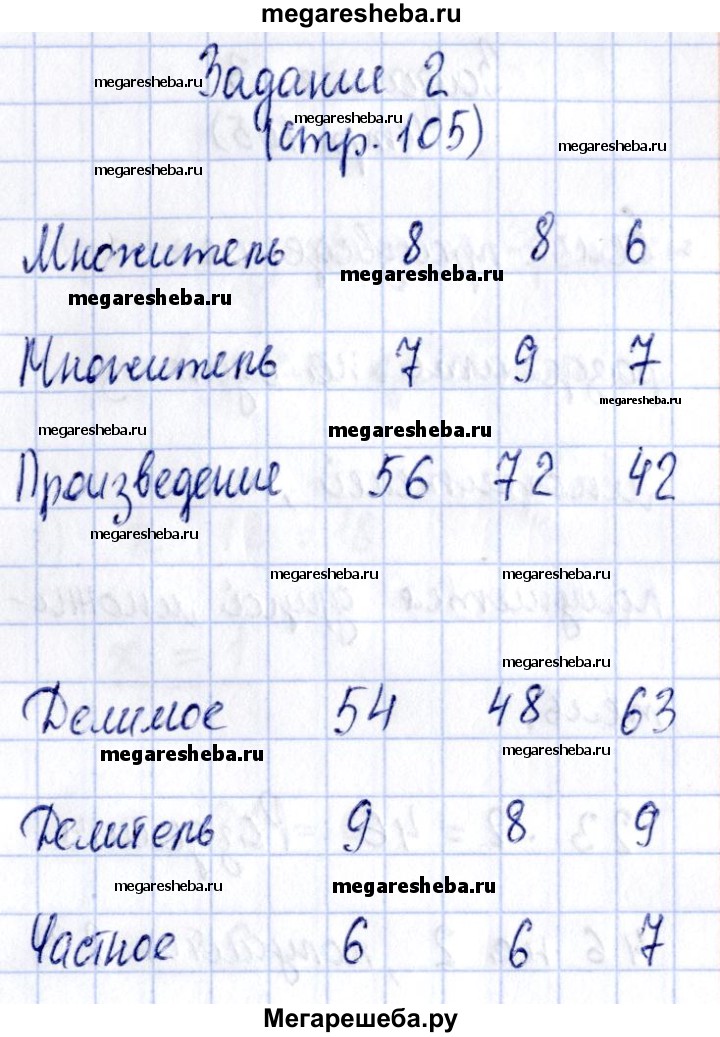 megaresheba.ru
Задание 2
megaresheba.ru
megaresheba.ru
(стр. 105)
megaresheba.ru
megaresheba.ru
Множитель 8 8 6
megaresheba.ru
megaresheba.ru
Множитель 7 9 7
megaresheba.ru
megaresheba.ru
megaresheba.ru
Произведение 56 72 42
megaresheba.ru
megaresheba.ru
megaresheba.ru
megaresheba.ru
Делимое 54 48 63
megaresheba.ru
megaresheba.ru
Делитель 9 8 9
megaresheba.ru
megaresheba.ru
Частное 6 6 7
Мегарешеба.ру